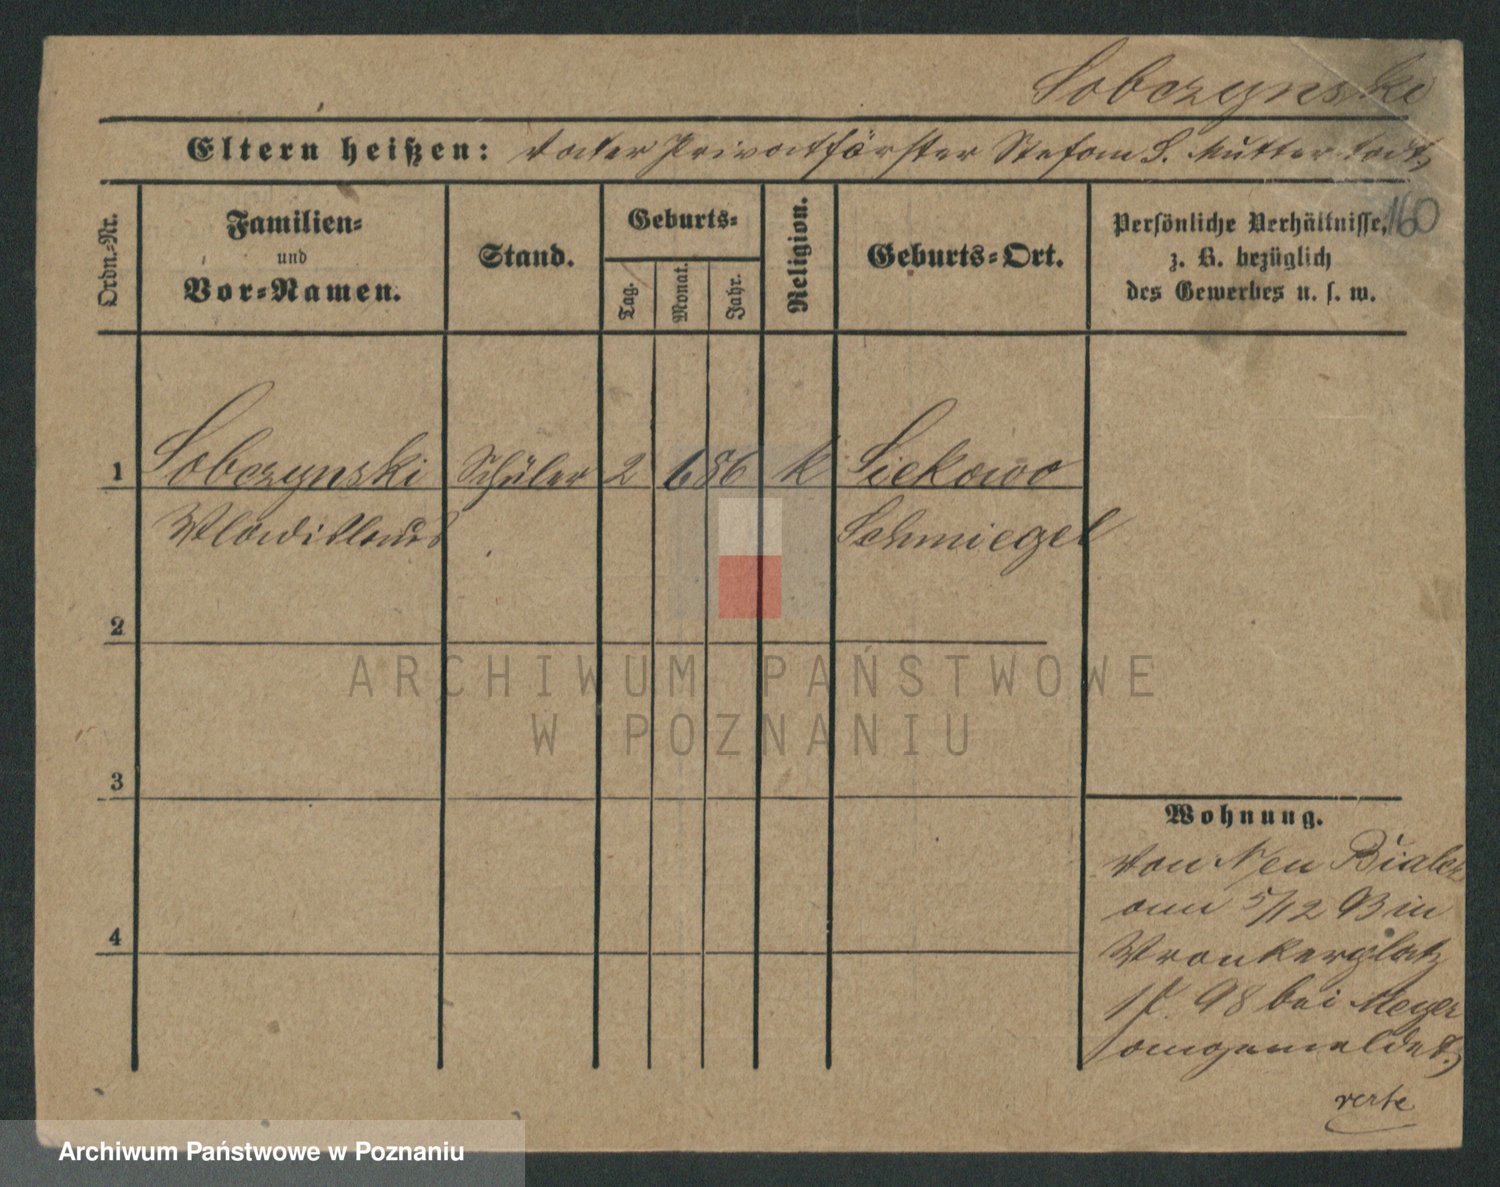 Sobczynski
Eltern heißen: Vater Privatförster Stefan S. Mutter todt,
160
Ordn.-Nr.
Familien-
und
Vor-Namen.
Stand.
Geburts-
Tag.
Monat.
Jahr.
Religion.
Geburts-Ort.
Persönliche Verhältnisse,
z. B. bezüglich
des Gewerbes u. s. w.
1 Sobczynski Schüler 2 6 86 k Siekowo
Wladislaus Schmiegel
2
ARCHIWUM PAŃSTWOWE
W POZNANIU
3
Wohnung.
Von Neu Bialcz
am 5/12 93 in
4
Wronkerplatz
98 bei Meyer
angemeldet,
verte
Archiwum Państwowe w Poznaniu